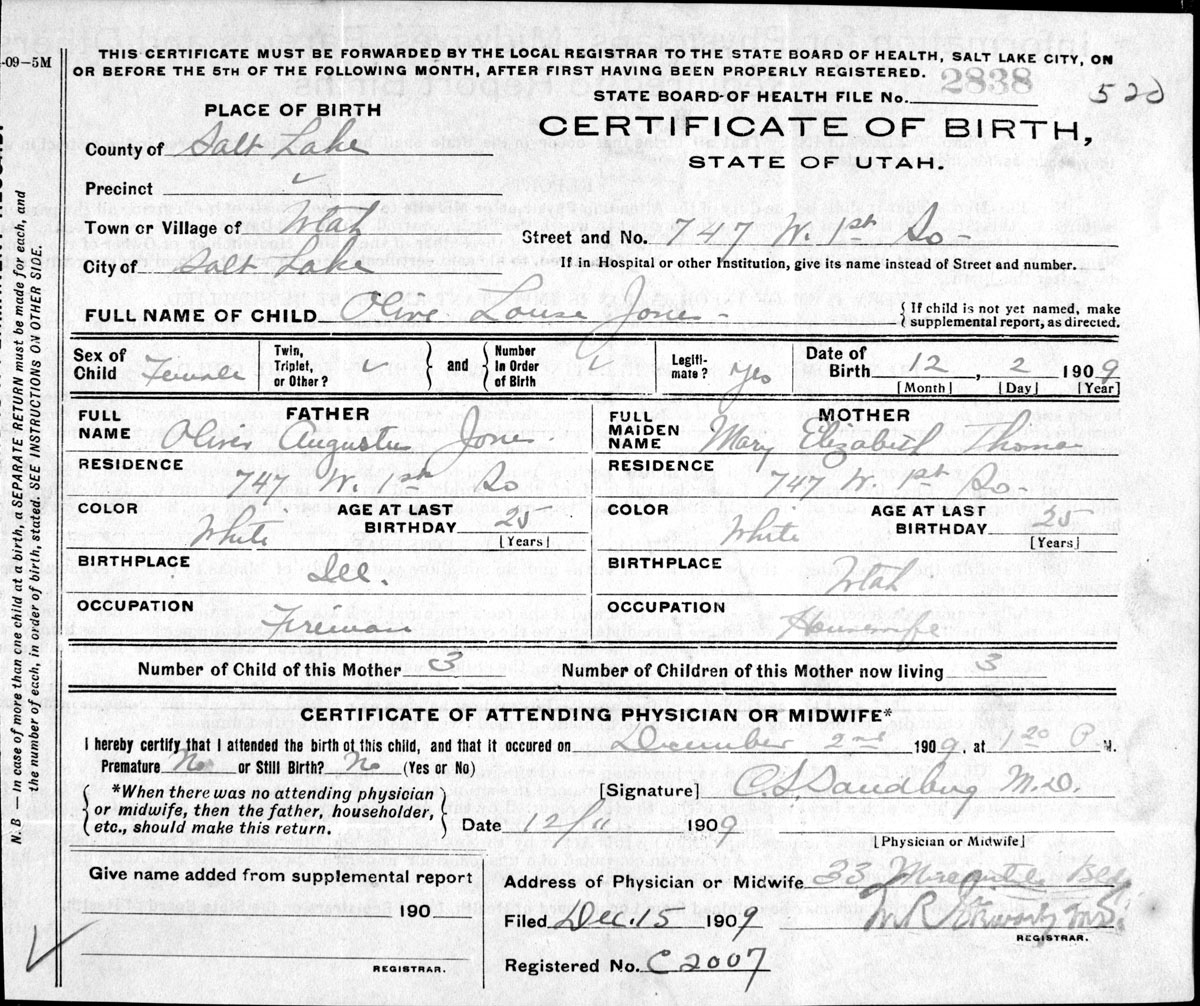 -09-5M
THIS CERTIFICATE MUST BE FORWARDED BY THE LOCAL REGISTRAR TO THE STATE BOARD OF HEALTH, SALT LAKE CITY, ON
OR BEFORE THE 5TH OF THE FOLLOWING MONTH, AFTER FIRST HAVING BEEN PROPERLY REGISTERED.
STATE BOARD OF HEALTH FILE No. 2838
520
PLACE OF BIRTH
CERTIFICATE OF BIRTH,
STATE OF UTAH.
County of Salt Lake
Precinct
Town or Village of Utah
Street and No. 747 W. 1st So
City of Salt Lake
If in Hospital or other Institution, give its name instead of Street and number.
FULL NAME OF CHILD Olive Louise Jones
{If child is not yet named, make supplemental report, as directed.
Sex of Child Female
Twin, Triplet, or Other?
and
Number in Order of Birth
Legiti-mate? Yes
Date of Birth 12, 2 1909
[Month] [Day] [Year]
FATHER
FULL NAME Oliver Augustus Jones
RESIDENCE 747 W. 1st So
COLOR White
AGE AT LAST BIRTHDAY 25
[Years]
BIRTHPLACE Ill.
OCCUPATION Fireman
MOTHER
FULL MAIDEN NAME Mary Elizabeth Thomas
RESIDENCE 747 W. 1st So.
COLOR White
AGE AT LAST BIRTHDAY 25
[Years]
BIRTHPLACE Utah
OCCUPATION Housewife
Number of Child of this Mother 3
Number of Children of this Mother now living 3
CERTIFICATE OF ATTENDING PHYSICIAN OR MIDWIFE*
I hereby certify that I attended the birth of this child, and that it occured on December 2nd 1909, at 1 20 P. M.
Premature No or Still Birth? No (Yes or No)
{*When there was no attending physician
or midwife, then the father, householder,
etc., should make this return.}
[Signature] C L Sandberg M.D.
Date 12/11 1909
[Physician or Midwife]
Give name added from supplemental report
190
REGISTRAR.
Address of Physician or Midwife 33 Bldg
Filed Dec. 15 1909
REGISTRAR.
Registered No. C 2007
N.B — In case of more than one child at a birth, a SEPARATE RETURN must be made for each, and
the number of each, in order of birth, stated. SEE INSTRUCTIONS ON OTHER SIDE.